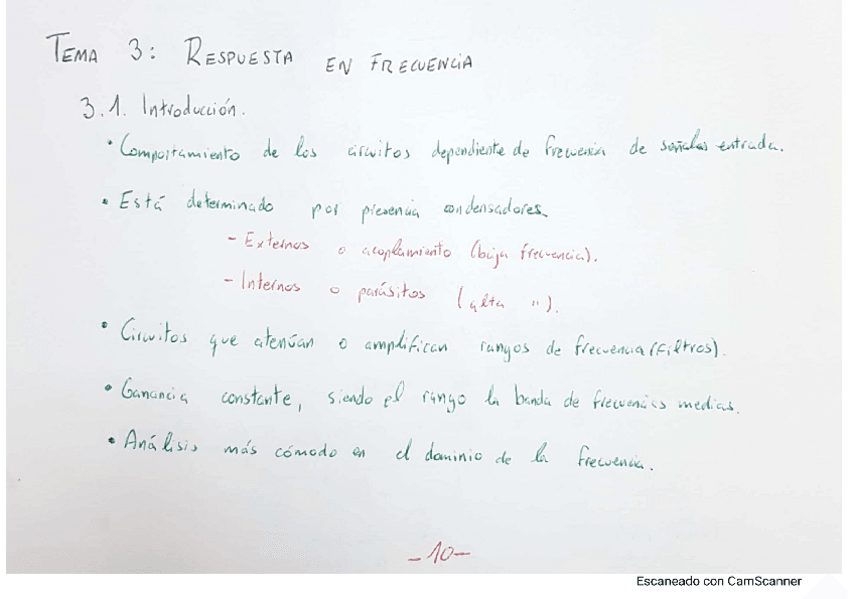 TEMA 3: RESPUESTA EN FRECUENCIA
3.1. Introducción.
• Comportamiento de los circuitos dependiente de frecuencia de señales entrada.
• Está determinado por presencia condensadores
- Externos o acoplamiento (baja frecuencia).
- Internos o parásitos (alta ").
• Circuitos que atenúan o amplifican rangos de frecuencia (Filtros).
• Ganancia constante, siendo el rango la banda de frecuencias medias.
• Análisis más cómodo en el dominio de la frecuencia.
-10-
Escaneado con CamScanner